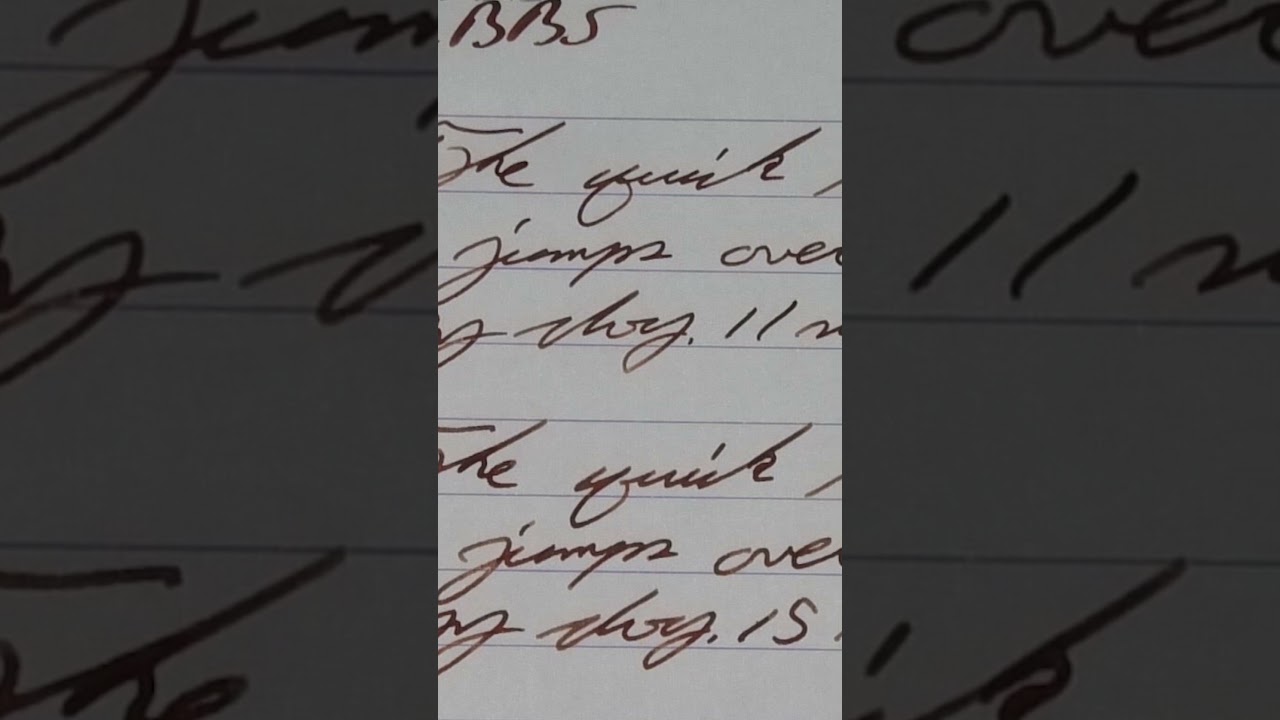 BBS
The quick
jumps over
dog. 11
The quick
jumps over
dog. 15